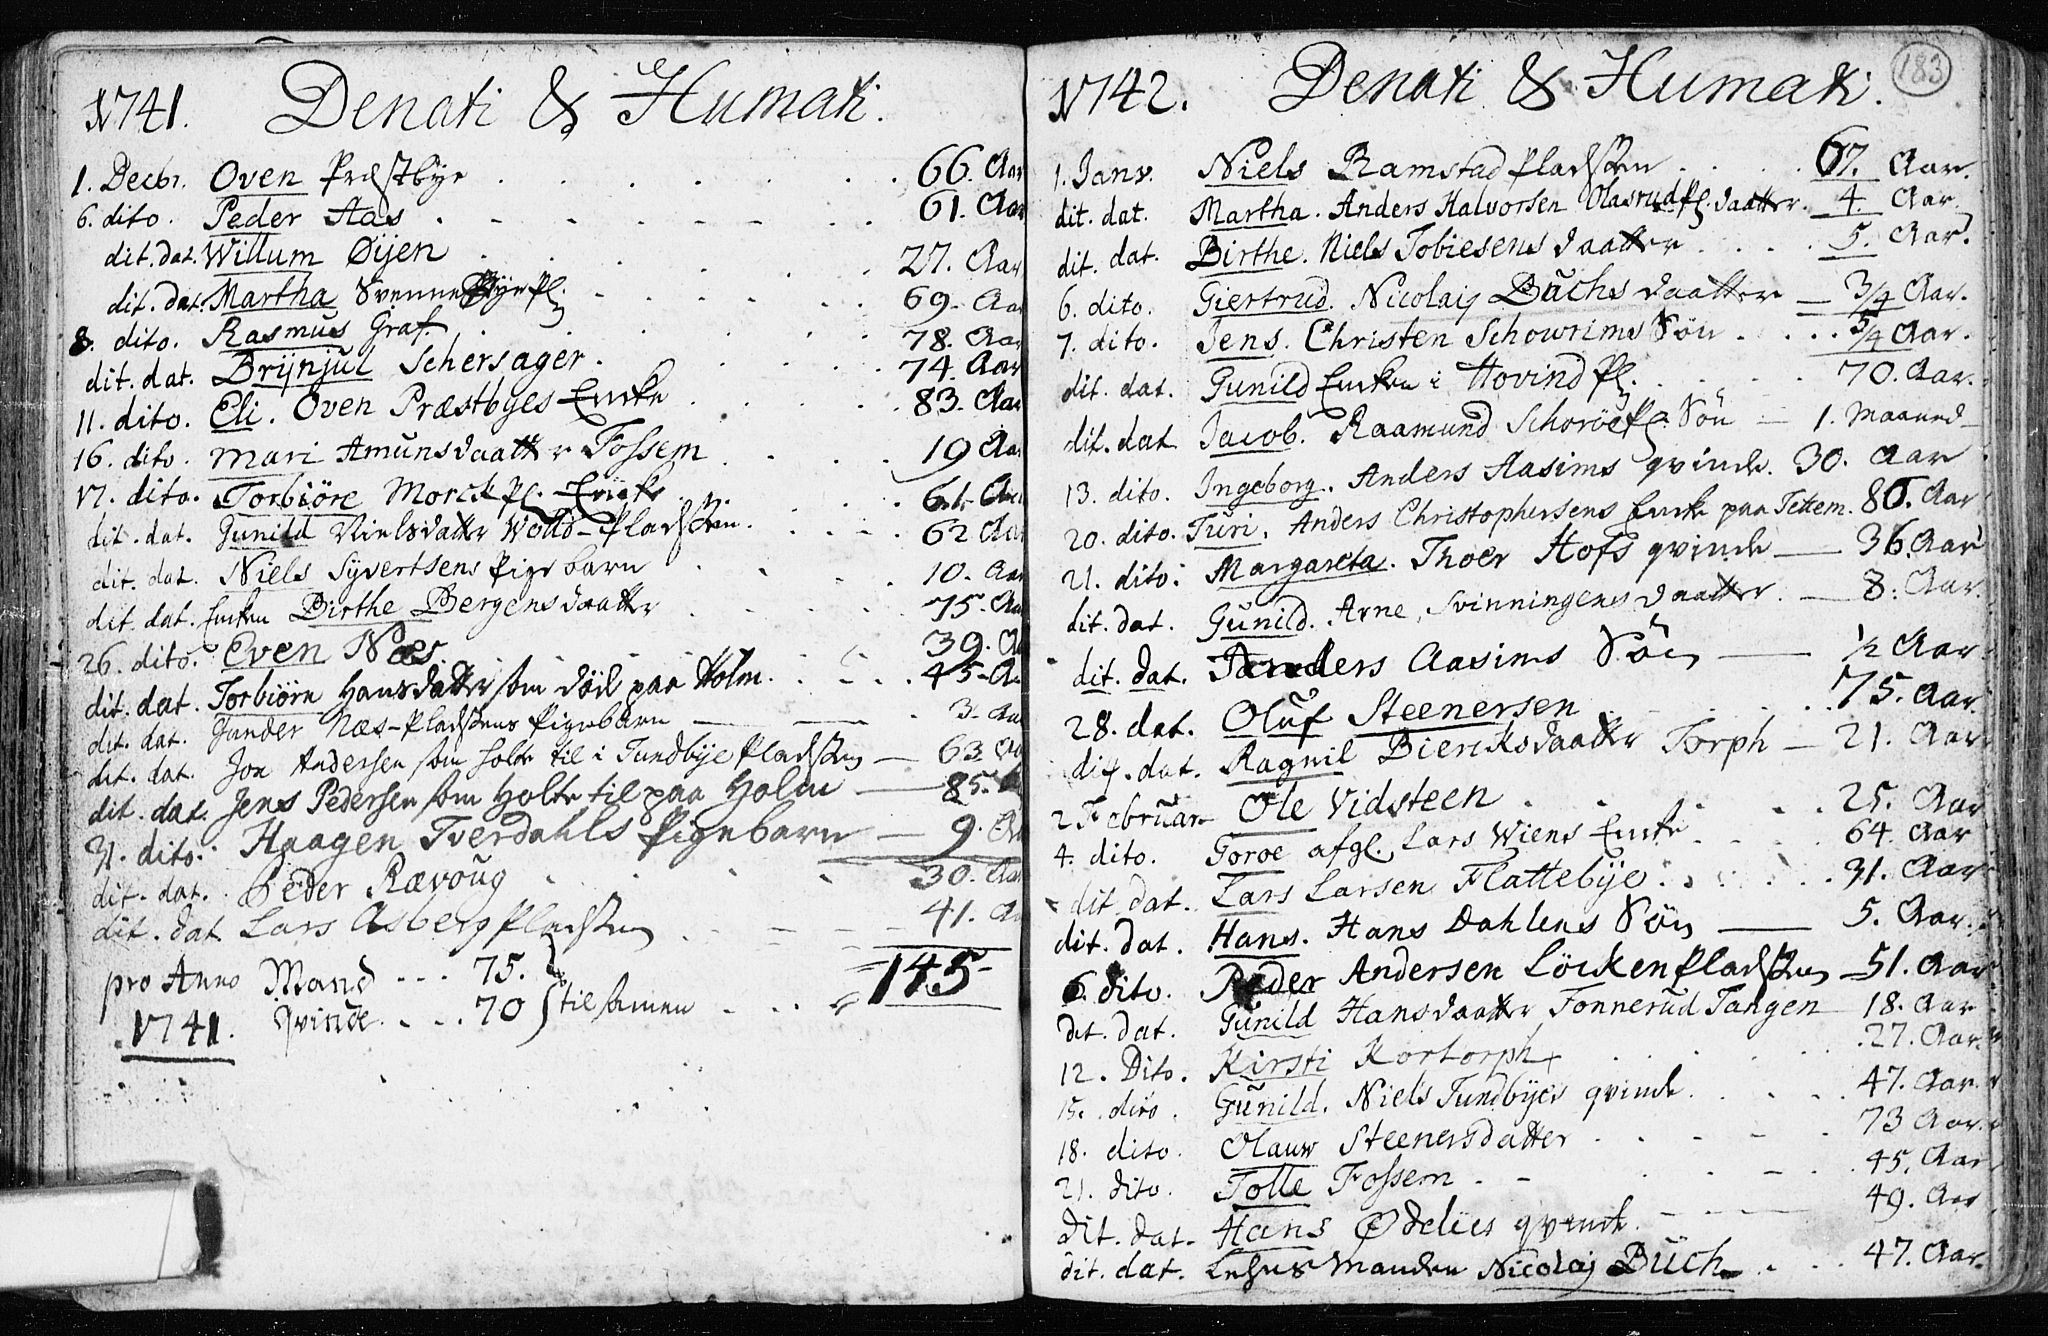 1741. Denati & Humati.
1. Decbr. Oven Præstbye . . . . . . 66. Aar
6. dito. Peder Aas . . . . . . 61. Aar
dit. dat. Willum Øijen . . . . 27. Aar
dit. dat. Martha Svenne Bye Pl. . . . . 69. Aar
8. dito. Rasmus Graf. . . . . 78. Aar
dit. dat. Brÿnjul Schersager . . . . 74. Aar
11. dito. Eli. Oven Præstbyes Encke . . . . 83. Aar
16. dito. Mari Amunsdaatter Fossem . . . . 19 Aar
17. dito. Torbiöre Morck Pl. Encke . . . . 61. Aar
dit. dat. Gunild Nielsdatter Wold-Pladsen . . . . 62 Aar
dit. dat. Niels Syvertsens Pigebarn . . . . 10. Aar
dit. dat. Encken Birthe Bergensdaatter . . . . 75. Aar
26. dito. Even Næs . . . . 39. Aar
dit. dat. Torbiörn Hansdatter som döde paa Holm . . . . 45. Aar
dit. dat. Gunder Næs-Pladsens Pigebarn — — 3. Aar
dit. dat. Jon Andersen som holte til i Tundbÿe Pladsen — 63. Aar
dit. dat. Jens Pedersen som Holte til paa Holm — 85.
31. dito. Haagen Tverdahls Pigebarn — 9. Aar
dit. dat. Peder Rævoug . . . . 30. Aar
dit. dat. Lars Asberg Pladsen . . . . 41. Aar
pro Anno Mand . . . 75. } tilsamen . . . 145
1741. Qvinde . . . 70
183
1742. Denati & Humati.
1. Janv. Niels Ramstad Pladsen . . . . 67. Aar.
dit. dat. Martha. Anders Halvorsen Olasrud Pl. daatter. 4. Aar.
dit. dat. Birthe. Niels Tobiesens daatter . . . . 5. Aar.
6. dito. Giertrud. Nicolaij Büchs daatter — 3/4 Aar.
7. dito. Jens. Christen Schowrims Sön . . . . 5/4 Aar.
dit. dat. Gunild Encken i Hovind Pl. . . . . 70. Aar.
dit. dat. Jacob. Raamund Schoröe Pl. Sön — 1. Maaned
13. dito. Ingeborg. Anders Aasims qvinde. 30. Aar
20. dito. Turi. Anders Christophersens Encke paa Tettem. 80. Aar
21. dito. Margareta. Thoer Hofs qvinde — 36. Aar
dit. dat. Gunild. Arne Svinningens daatter. — 8. Aar.
dit. dat. Anders Aasims Sön — 1/2 Aar.
28. dat. Oluf Steenersen . . . . 75. Aar.
dit. dat. Ragnil Biercksdaatter Torph — 21. Aar
2 Februar Ole Vidsteen . . . . 25. Aar
4. dito. Goroe afgl. Lars Wiens Encke . . . . 64. Aar
dit. dat. Lars Larsen Flattebÿe . . . . 31. Aar
dit. dat. Hans. Hans Dahlens Sön — 5. Aar.
6. dito. Peder Andersen Löcken Pladsen — 51. Aar
dit. dat. Gunild Hansdaatter Tonnerud Tangen 18. Aar
12. Dito. Kirsti Kortorph . . . . 27. Aar.
15. dito. Gunild. Niels Tundbÿes qvinde . . . . 47. Aar.
18. dito. Olauw Steenersdatter . . . . 73 Aar.
21. dito. Tolle Fossem . . . . 45. Aar
dit. dat. Hans Ødelües qvinde . . . . 49. Aar
dit. dat. Lehns Manden Nicolaj Büch . . . . 47. Aar.